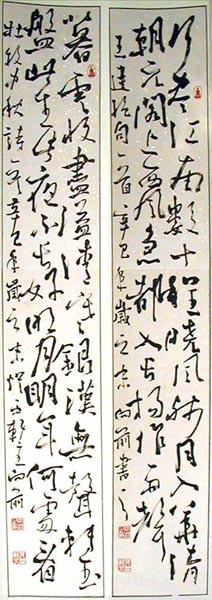 行盡江南數十程曉風殘月入華清
朝元閣上西風急都入長楊作雨聲
王建絕句一首辛巳年歲之末向前書
暮雲收盡溢清寒銀漢無聲轉玉
盤此生此夜不長好明月明年何處看
中秋詩一首辛巳年歲之末軒主向前